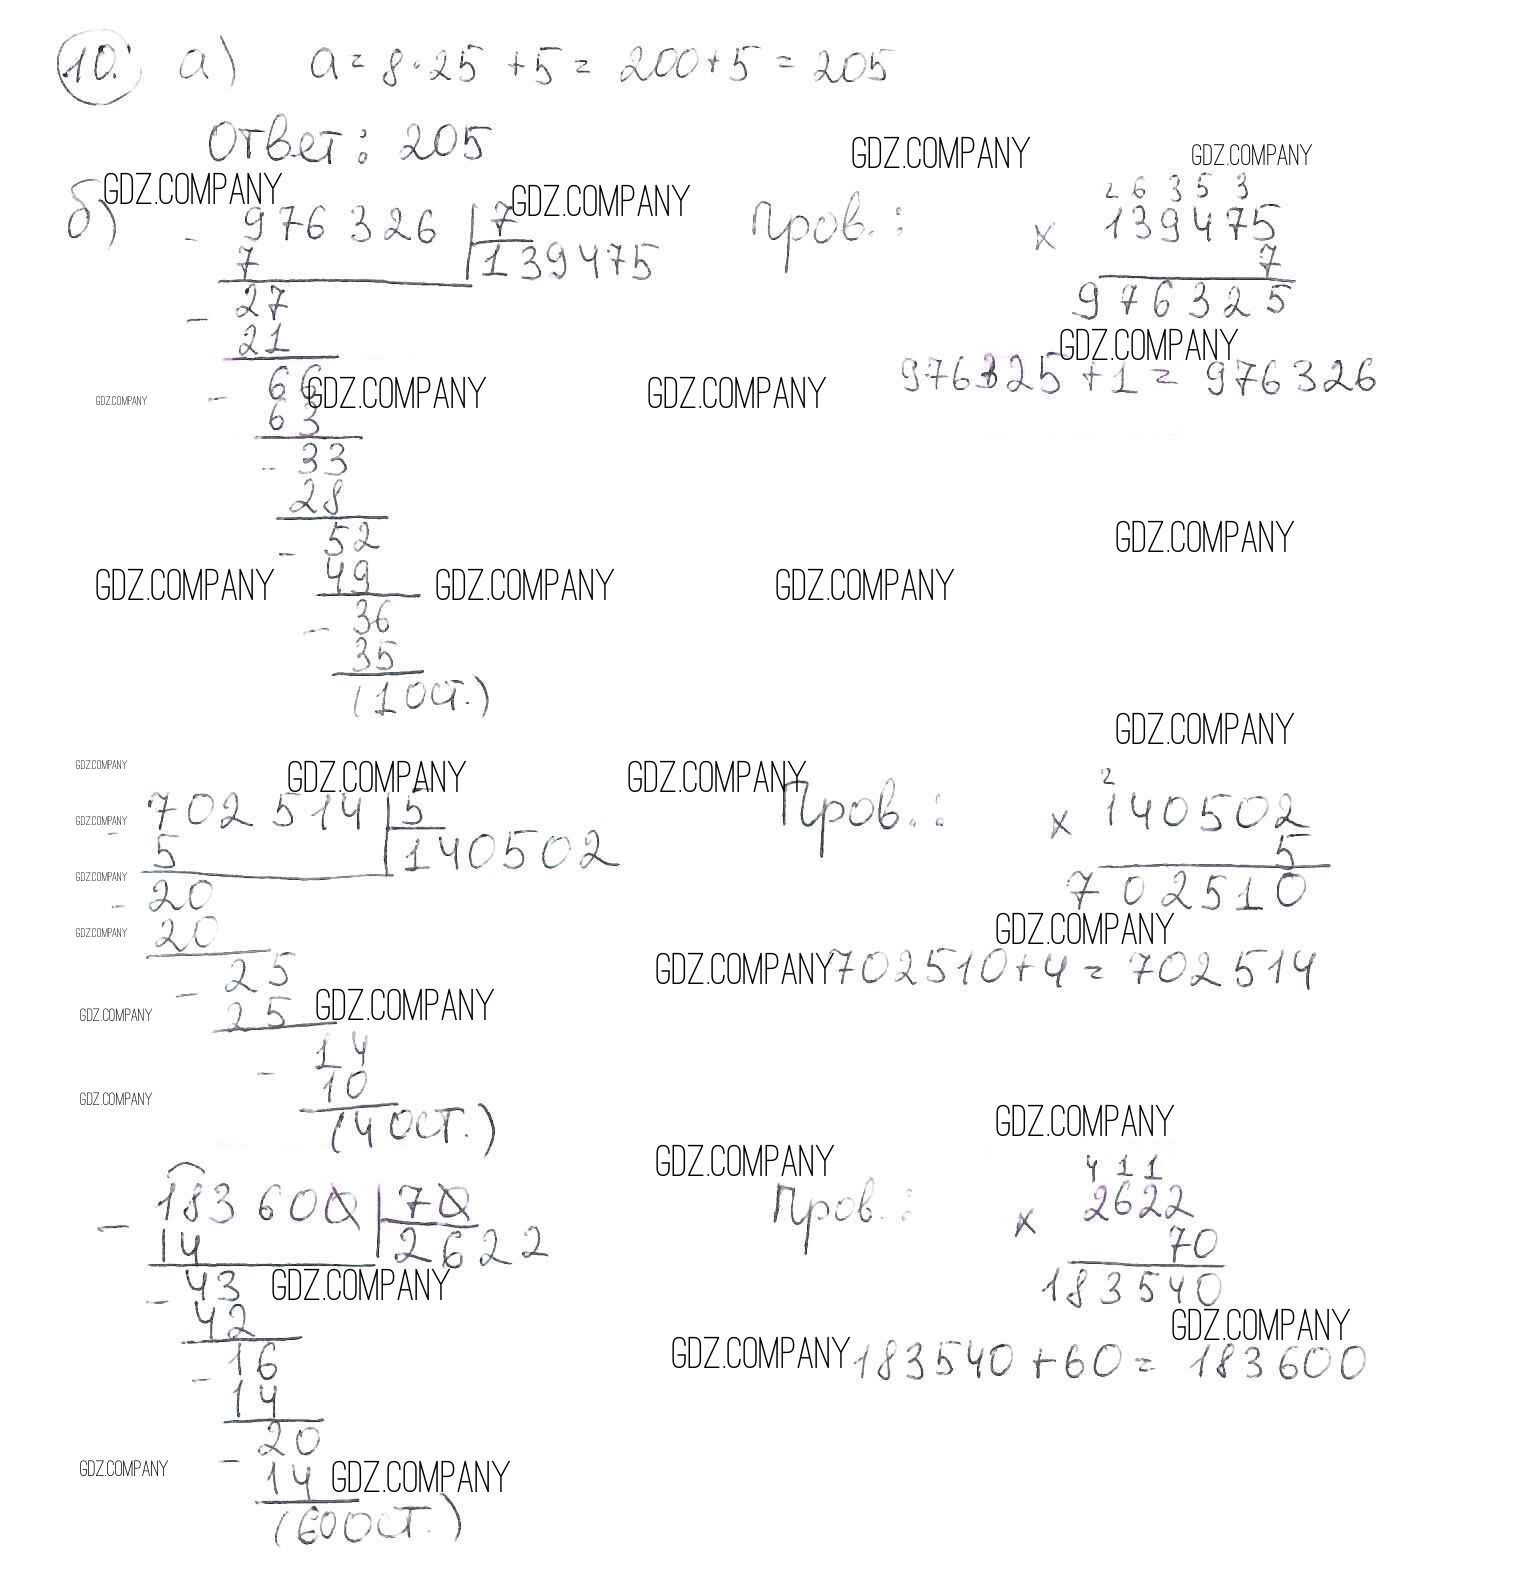 10. а) a = 8·25 + 5 = 200 + 5 = 205
Ответ: 205
GDZ.COMPANY GDZ.COMPANY
GDZ.COMPANY GDZ.COMPANY
б) - 976 326 | 7
139475
7
- 27
21
- 66
63
- 33
28
- 52
49
- 36
35
(1 ост.)
Пров.:
2 6 3 5 3
× 139475
7
976325
GDZ.COMPANY
976325 + 1 = 976326
GDZ.COMPANY GDZ.COMPANY GDZ.COMPANY
GDZ.COMPANY
GDZ.COMPANY GDZ.COMPANY GDZ.COMPANY
GDZ.COMPANY
GDZ.COMPANY GDZ.COMPANY GDZ.COMPANY
- 702 514 | 5
140502
5
- 20
20
- 25
25
- 14
10
(4 ост.)
Пров.:
2
× 140502
5
702510
GDZ.COMPANY
702510 + 4 = 702514
GDZ.COMPANY
GDZ.COMPANY
GDZ.COMPANY
GDZ.COMPANY
GDZ.COMPANY GDZ.COMPANY
GDZ.COMPANY
GDZ.COMPANY
GDZ.COMPANY
- 183 600 | 70
2622
14
- 43
42
- 16
14
- 20
14
(60 ост.)
Пров.:
4 1 1
× 2622
70
183540
183540 + 60 = 183600
GDZ.COMPANY
GDZ.COMPANY
GDZ.COMPANY
GDZ.COMPANY GDZ.COMPANY